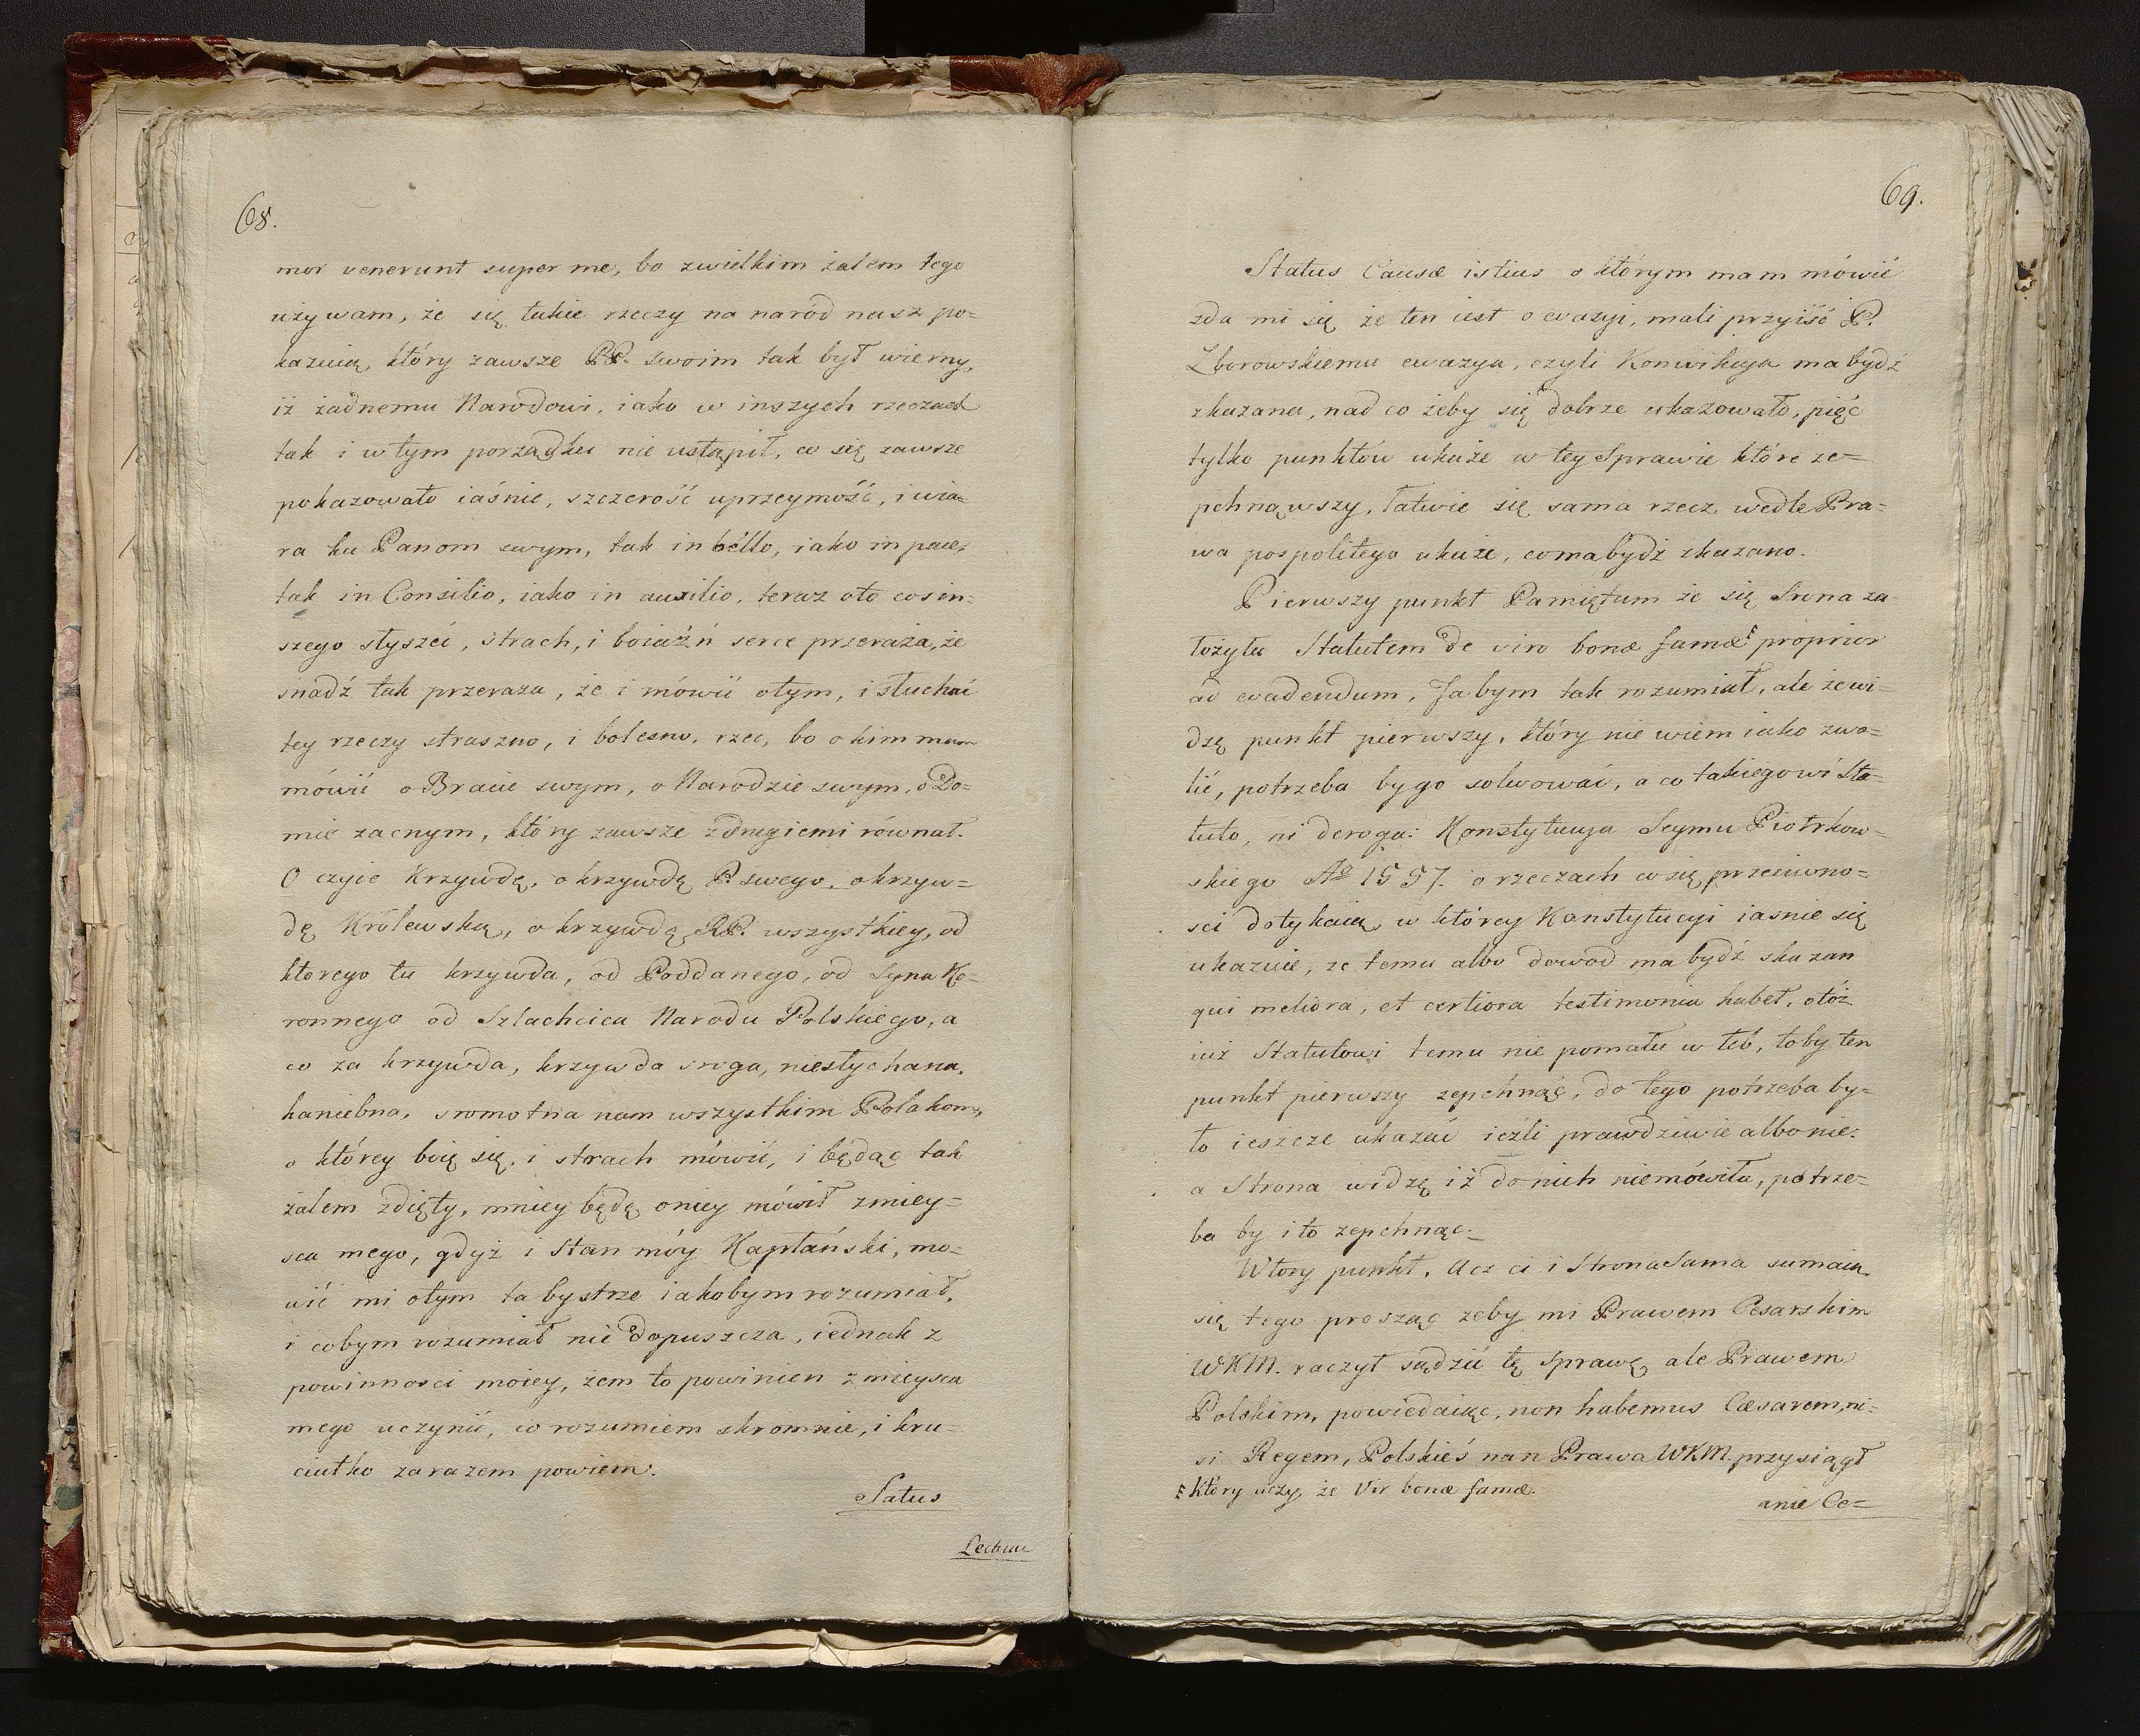 68.
mor venerunt super me, bo zwielkim żalem tego
używam, że się takie rzeczy na naród nasz po=
kazuią, który zawsze PP. swoim tak był wierny,
iż żadnemu Narodowi, iako w inszych rzeczach
tak i w tym porządku nie ustąpił, co się zawsze
pokazowało iaśnie, szczerość uprzeymość, i wia=
ra ku Panom swym, tak in bello, iako in pace,
tak in Consilio, iako in auxilio, teraz oto cosin=
szego słyszéć, strach, i boiaźń serce przeraża, że
snadź tak przeraza, że i mówić otym, i słuchać
tey rzeczy straszno, i bolesno, rzec, bo o kim mam
mówić o Bracie swym, o Narodzie swym, o Do=
mie zacnym, który zawsze z drugiemi równał.
O czyie Krzywdę, o krzywdę P. swego, o krzyw=
dę Królewską, o krzywdę RP. wszystkiey, od
ktorego ta krzywda, od Poddanego, od Syna Ko=
ronnego od Szlachcica Narodu Polskiego, a
co za krzywda, krzywda sroga, niesłychana,
haniebna, sromotna nam wszystkim Polakom,
o którey boię się, i strach mówić, i będąc tak
żalem zdięty, mniey będę oniey mówił zmiey=
sca mego, gdyż i Stan móy Kapłański, mo=
wić mi otym ta bystrze iakobym rozumiał,
i cobym rozumiał nie dopuszcza, iednak z
powinnosci moiey, żem to powinien z mieysca
mego uczynić, co rozumiem skromnie, i kru=
ciutko zarazem powiem.
Satus
69.
Status Causæ istius o którym mam mówić
zda mi się że ten iest o evazyi, mali przyiść P.
Zborowskiemu ewazya, czyli Konwikcya ma bydź
skazana, nad co żeby się dobrze ukazowało, pięć
tylko punktów ukaże w tey Sprawie które ze=
pchnąwszy, łatwie się sama rzecz wedle Pra=
wa pospolitego ukaże, comabydź skazano.
Pierwszy punkt Pamiętam że się Srona za=
łożyła Statutem de viro bonæ famæ proprior
ad evadendum, Ja bym tak rozumiał, ale że wi=
dzę punkt pierwszy, który nie wiem iako zwo=
lić, potrzeba by go solwować, a co takiegowi Sta=
tuto, ni deroga: Konstytucya Seymu Piotrkow=
skiego Ao 1557. o rzeczach co się przeciwno=
sci dotykaią, w którey Konstytucyi iasnie się
ukazuie, ze temu albo dowod ma bydź skazan
qui meliora, et certiora testimonia habet, otóż
iuż Statutowi temu nie pomału w łéb, toby ten
punkt pierwszy zepchnąć, do tego potrzeba by=
ło ieszcze ukazać ieźli prawdziwie albo nie:
a Strona widzę iż do nich niemówiła, potrze=
ba by i to zepchnąć.
Wtory punkt, Acz ci i Strona Sama sumaia
się tego prosząc żeby mi Prawem Cesarskim
WKM. raczył sądzić tę sprawę, ale Prawem
Polskim, powiedaiąc, non habemus Cæsarem, ni=
si Regem, Polskieś nan Prawa WKM. przysiągł
który uczy, że Vir bonæ famæ.
anie Ce=